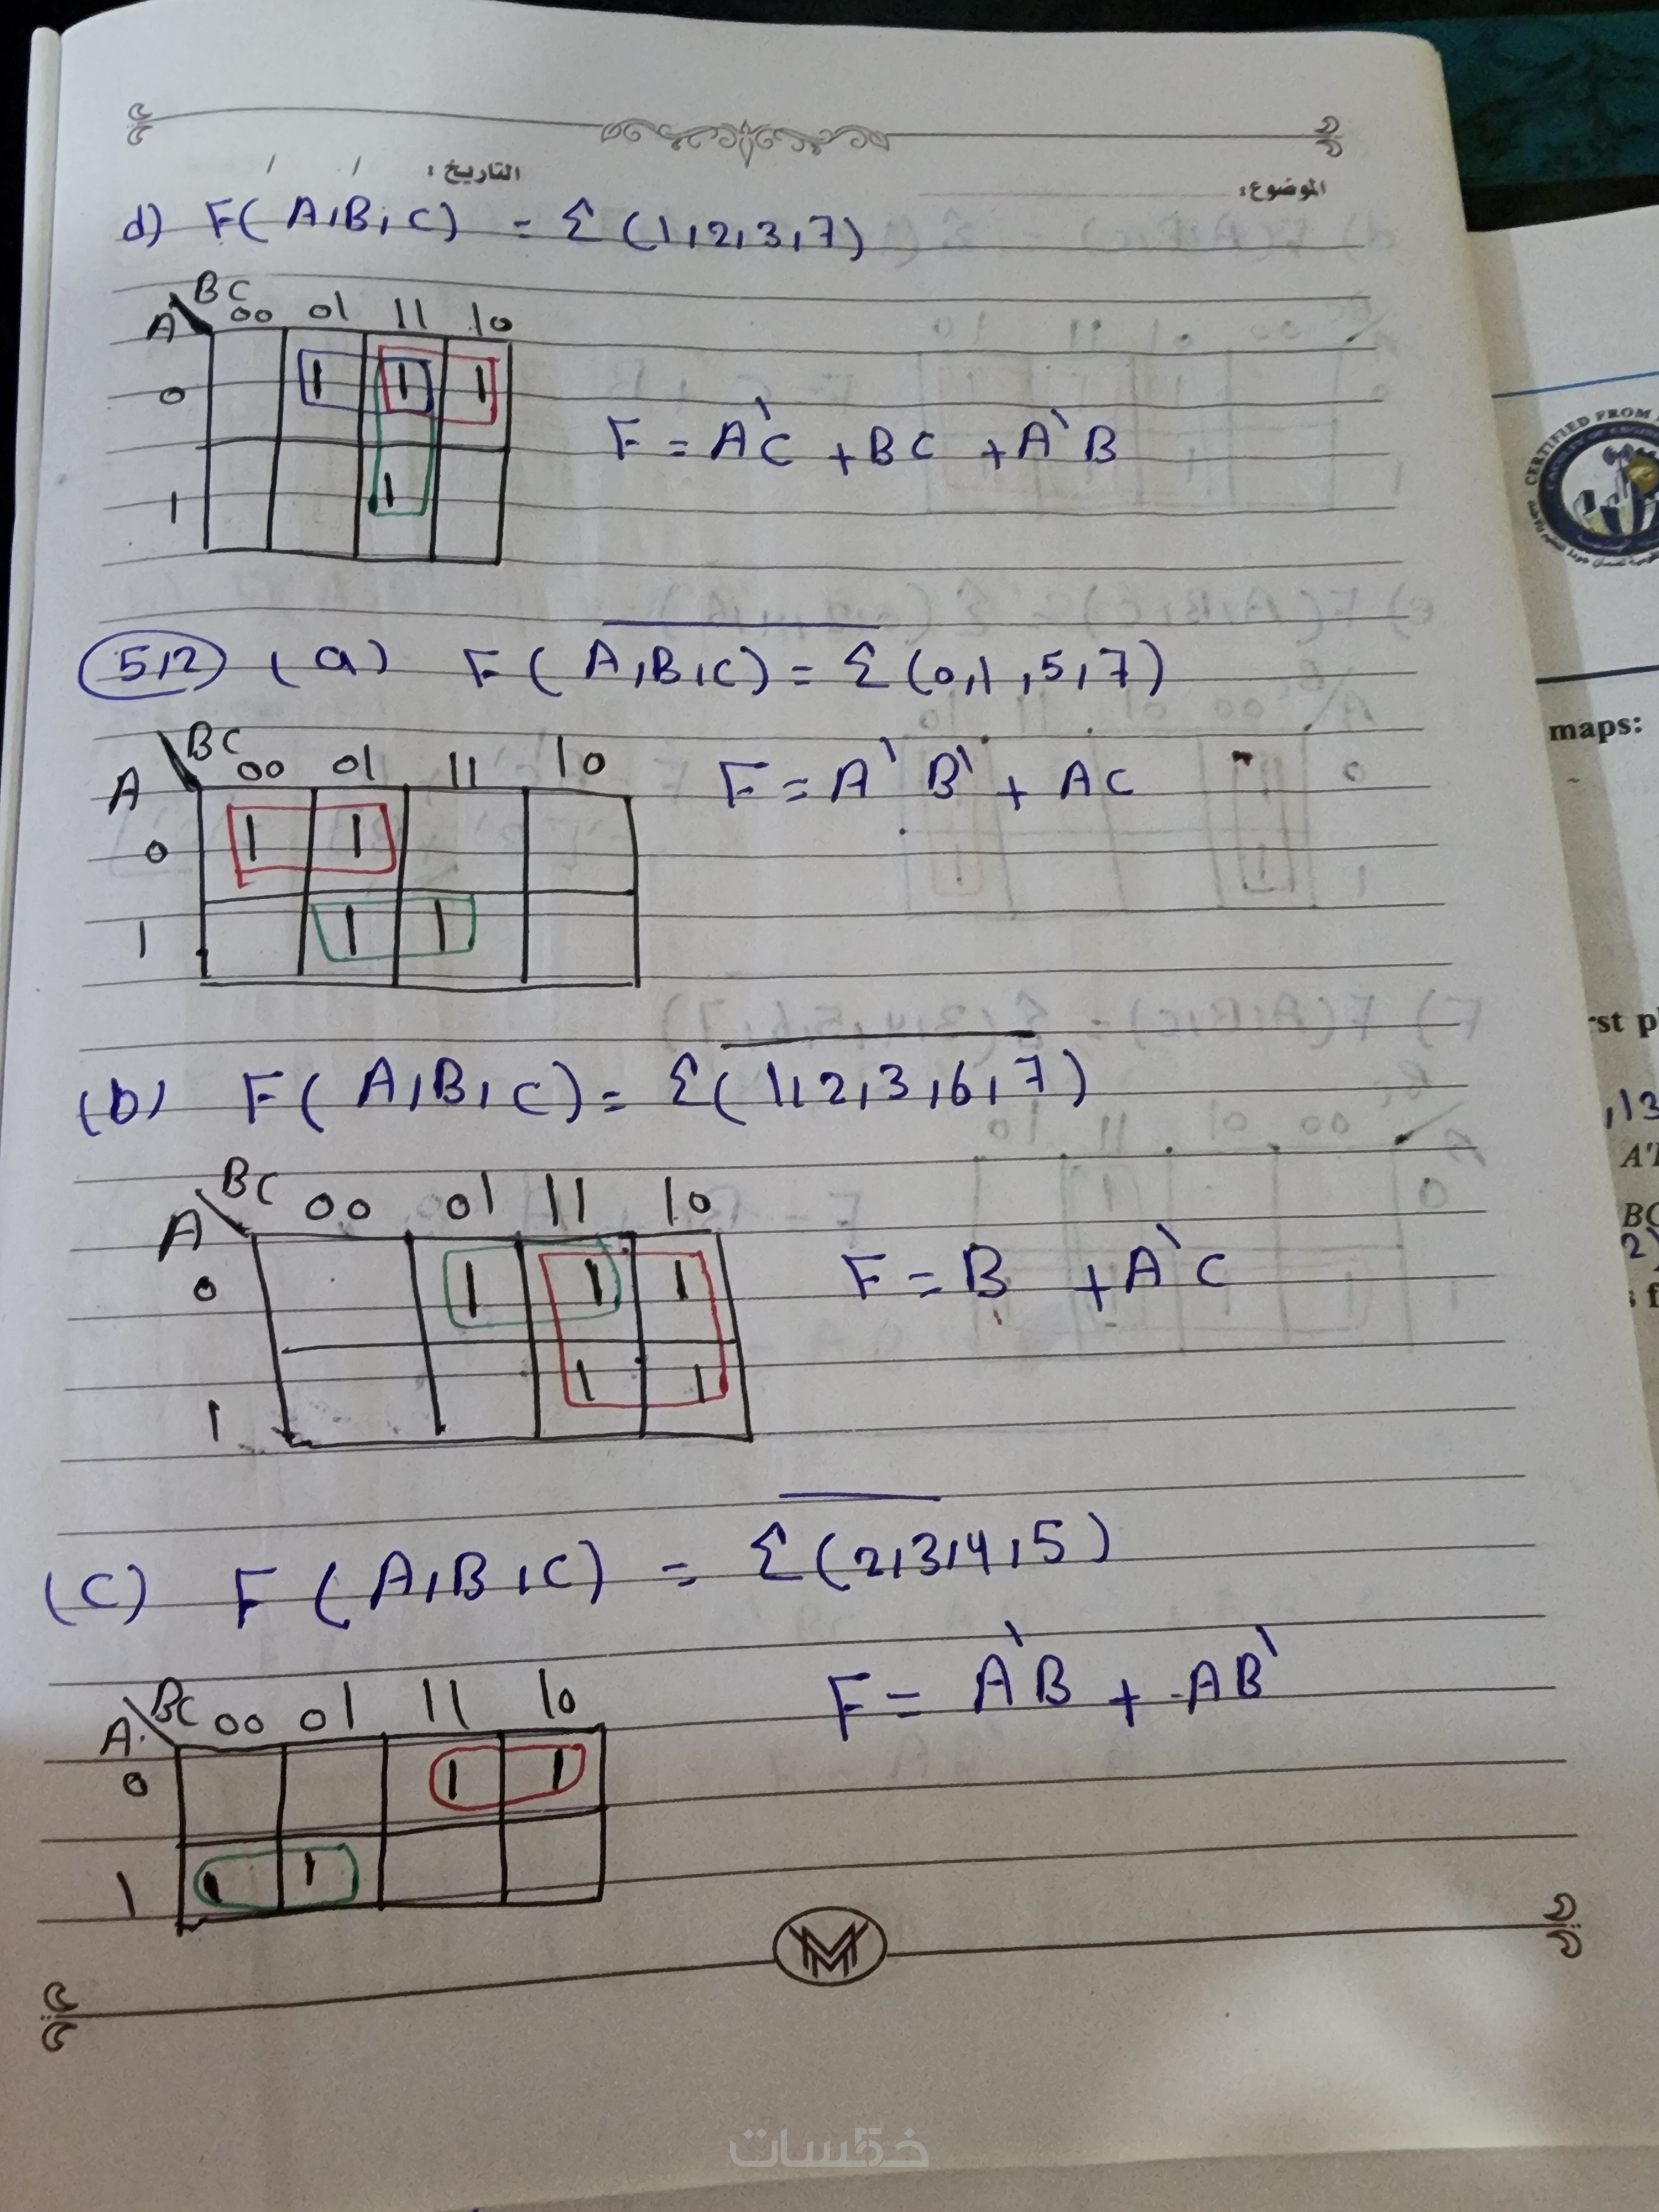 التاريخ: / /
الموضوع:
d) F(A,B,C) = Σ(1,2,3,7)
A BC 00 01 11 10
0 1 1 1
1 1
F = A'C + BC + A'B
5,2 (a) F(A,B,C) = Σ(0,1,5,7)
A BC 00 01 11 10
0 1 1
1 1 1
F = A'B' + AC
(b) F(A,B,C) = Σ(1,2,3,6,7)
A BC 00 01 11 10
0 1 1 1
1 1 1
F = B + A'C
(C) F(A,B,C) = Σ(2,3,4,5)
F = A'B + AB'
A BC 00 01 11 10
0 1 1
1 1 1
CERTIFIED FROM
maps:
,13
BC
2)
M
خمسات